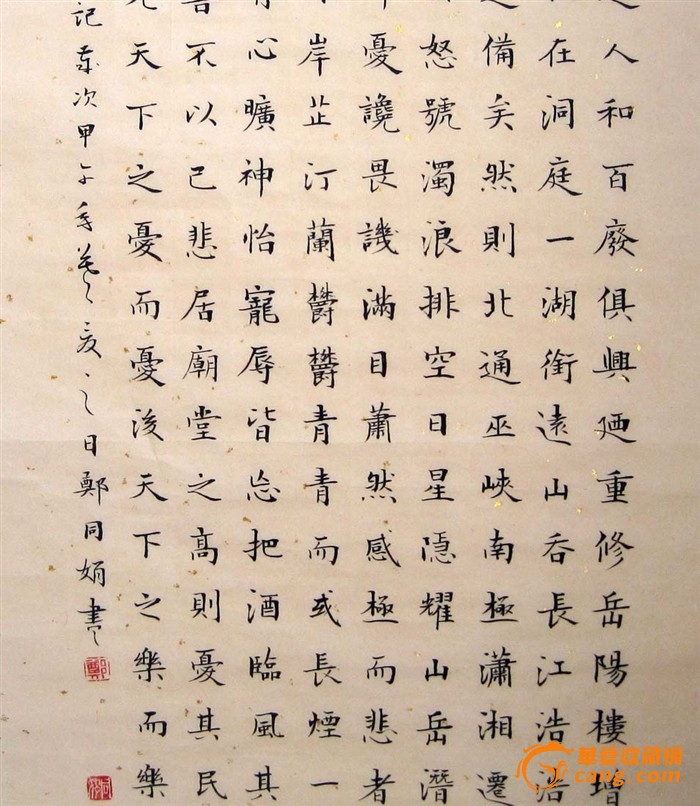 人和百廢俱興廼重修岳陽樓增
在洞庭一湖銜遠山吞長江浩浩
備矣然則北通巫峽南極瀟湘遷
怒號濁浪排空日星隱耀山岳潛
憂讒畏譏滿目蕭然感極而悲者
岸芷汀蘭鬱鬱青青而或長煙一
心曠神怡寵辱皆忘把酒臨風其
不以己悲居廟堂之高則憂其民
天下之憂而憂後天下之樂而樂
記歲次甲午年夏之日鄭同娟書
鄭
華夏收藏網
cang.com